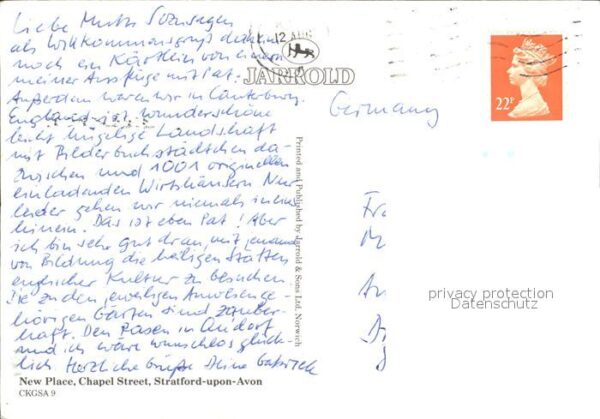 Liebe Mutti Sozusagen
als Willkommensgruß daheim
noch ein Kärtlein von einem
meiner Ausflüge mit Pat.
Außerdem waren wir in Canterbury.
England ist wunderschöne
leicht hügelige Landschaft
mit Bilderbuchstädtchen da-
zwischen und 1001 originellen
einladenden Wirtshäusern Nur
leider gehen wir niemals in eine
hinein. Das ist eben Pat! Aber
ich bin sehr gut dran, mit jemand
von Bildung die heiligen Stätten
englischer Kultur zu besuchen
Die zu den jeweiligen Anwesen ge-
hörigen Gärten sind zauber-
haft. Den Rasen in
und ich wäre wunschlos glück-
lich Herzliche Grüße Deine
New Place, Chapel Street, Stratford-upon-Avon
CKGSA 9
12 AUG
JARROLD
Printed and Published by Jarrold & Sons Ltd, Norwich
22P
Germany
Fr.
privacy protection
Datenschutz